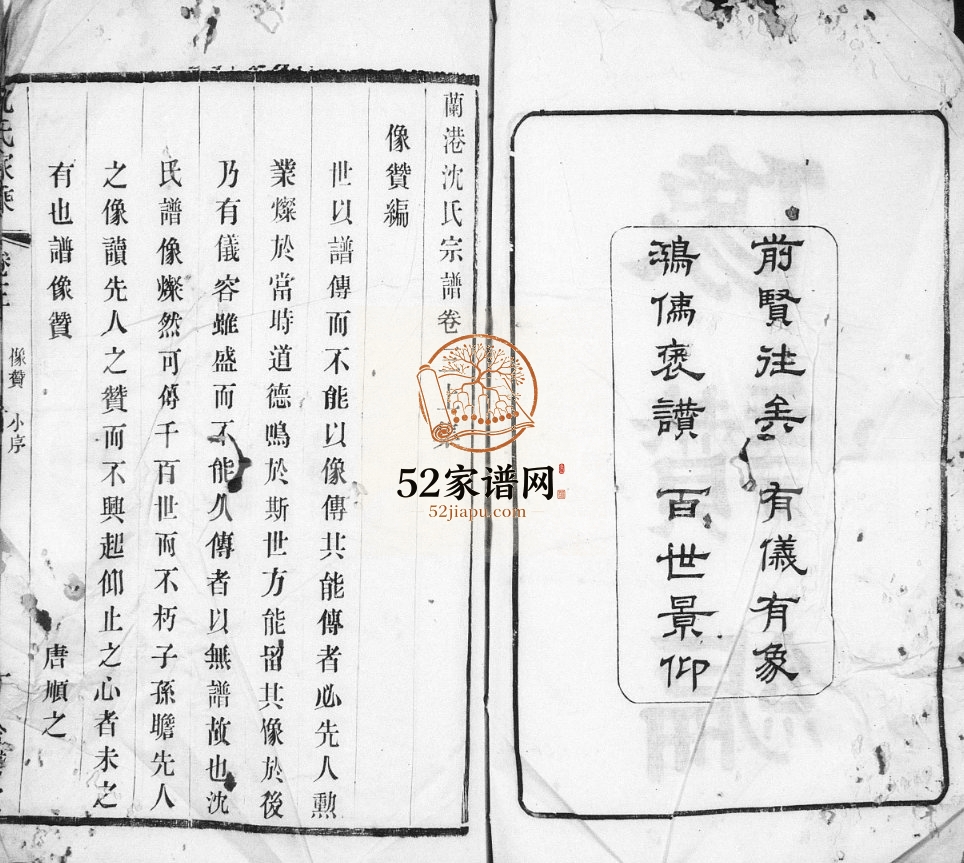 前賢往矣 有儀有象
鴻儒褒讚 百世景仰
蘭港沈氏宗譜卷
像贊編
世以譜傳而不能以像傳其能傳者必先人勲
業燦於當時道德鳴於斯世方能留其像於後
乃有儀容雖盛而不能久傳者以無譜故也沈
氏譜像燦然可傳千百世而不朽子孫瞻先人
之像讀先人之贊而不興起仰止之心者未之
有也譜像贊
唐順之
氏家乘
像贊 小序
52家谱网
52jiapu.com